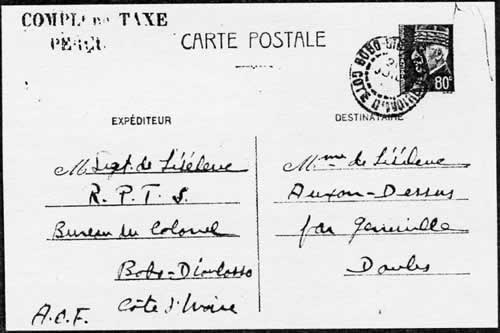 COMPLt DE TAXE
PERÇU
CARTE POSTALE
80c
BOBO-DIOULASSO
CÔTE D'IVOIRE
EXPÉDITEUR
M Sgt. de Liéleve
R. P. T. S.
Bureau du Colonel
Bobo-Dioulasso
Côte d'Ivoire
A.O.F.
DESTINATAIRE
Mme de Liéleve
Auxon-Dessus
par Geneuille
Doubs